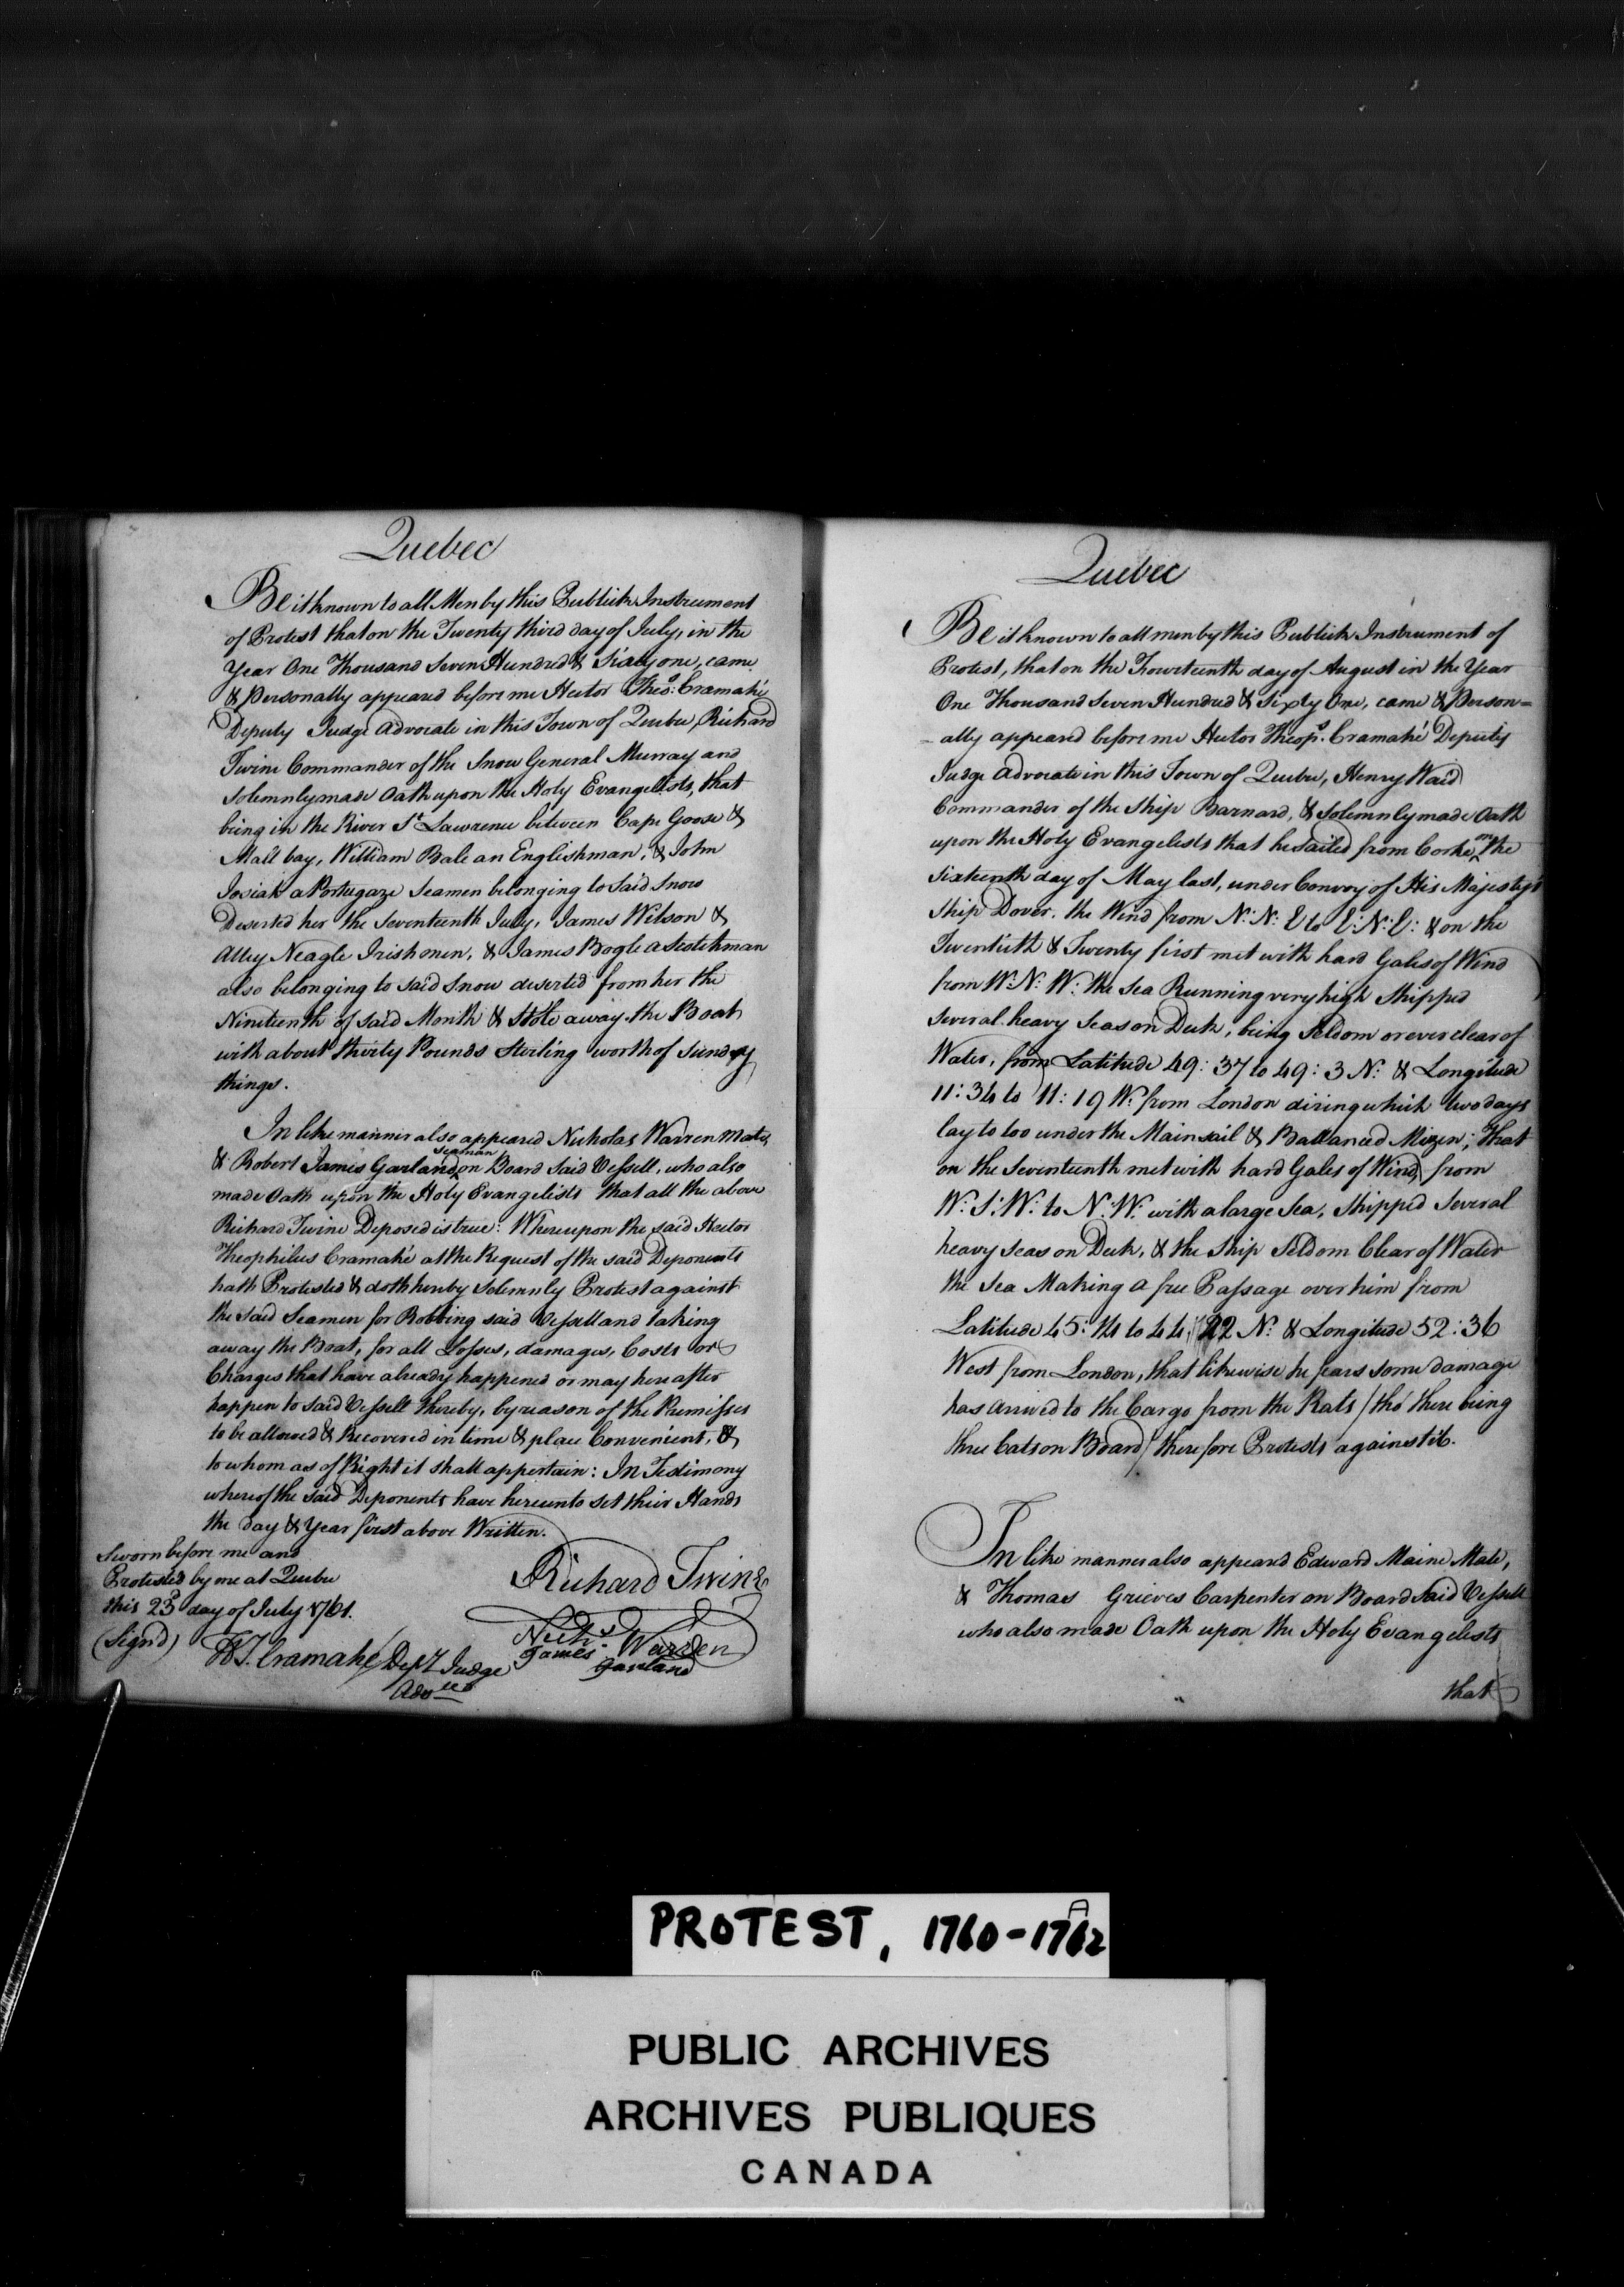 Quebec
Be it known to all Men by this Publick Instrument
of Protest that on the Twenty third day of July, in the
Year One Thousand Seven Hundred & Sixty one, came
& Personally appeared before me Hector Theo.s Cramahé
Deputy Judge Advocate in this Town of Quebec, Richard
Twine Commander of the Snow General Murray and
Solemnly made Oath upon the Holy Evangelists, that
being in the River St Lawrence between Cape Goose &
Mall bay, William Bale an Englishman, & John
Josiah a Portugaze Seamen belonging to Said Snow
Deserted her the Seventeenth July, James Wilson &
Alley Neagle Irishmen, & James Bogle a Scotchman
also belonging to said Snow deserted from her the
Nineteenth of said Month & Stole away the Boat
with about thirty Pounds Sterling worth of Sundry
things.
In like manner also appeared Nicholas Warren Mate,
& Robert James Garland seaman on Board Said Vessell, who also
made Oath upon the Holy Evangelists that all the above
Richard Twine Deposed is true: Whereupon the said Hector
Theophilus Cramahé at the Request of the said Deponents
hath Protested & doth hereby Solemnly Protest against
the said Seamen for Robbing said Vessell and taking
away the Boat, for all Losses, damages, Costs or
Charges that have already happened or may hereafter
happen to said Vessell thereby, by reason of the Premisses
to be allowed & Recovered in time & place Convenient, &
to whom as of Right it shall appertain: In Testimony
whereof the said Deponents have hereunto set their Hands
the day & Year first above Written.
Sworn before me and
Protested by me at Quebec
this 23d day of July 1761.
(Sign'd)
H T. Cramahé Depy Judge
Advte
Richard Twine
Nichs. Warren
James Garland
Quebec
Be it known to all men by this Publick Instrument of
Protest, that on the Fourteenth day of August in the Year
One Thousand Seven Hundred & Sixty One, came & Person=
-ally appeared before me Hector Theop.s Cramahé Deputy
Judge Advocate in this Town of Quebec, Henry Waid
Commander of the Ship Barnard, & Solemnly made Oath
upon the Holy Evangelists that he Sailed from Corke, on the
Sixteenth day of May last, under Convoy of His Majesty's
Ship Dover, the Wind from N: N: E to E: N: E: & on the
Twentieth & Twenty first met with hard Gales of Wind
from W: N: W: the Sea Running very high Shipped
Several heavy Seas on Deck, being Seldom or ever clear of
Water, from Latitude 49: 37 to 49: 3 N: & Longitude
11: 34 to 11: 19 W: from London diring which two days
lay to too under the Mainsail & Ballanced Mizen; that
on the Seventeenth met with hard Gales of Wind, from
W: S: W: to N: W: with a large Sea, Shipped Several
heavy Seas on Deck, & the Ship Seldom Clear of Water
the Sea Making a free Passage over him from
Latitude 45: 14 to 44: 22 N: & Longitude 52: 36
West from London, that likewise he fears some damage
has arrived to the Cargo from the Rats / tho' there being
three Cats on Board / therefore Protests against it.
In like manner also appeared Edward Maine Mate,
& Thomas Grieves Carpenter on Board Said Vessell
who also made Oath upon the Holy Evangelists
that
PROTEST, 1760-1762
PUBLIC ARCHIVES
ARCHIVES PUBLIQUES
CANADA